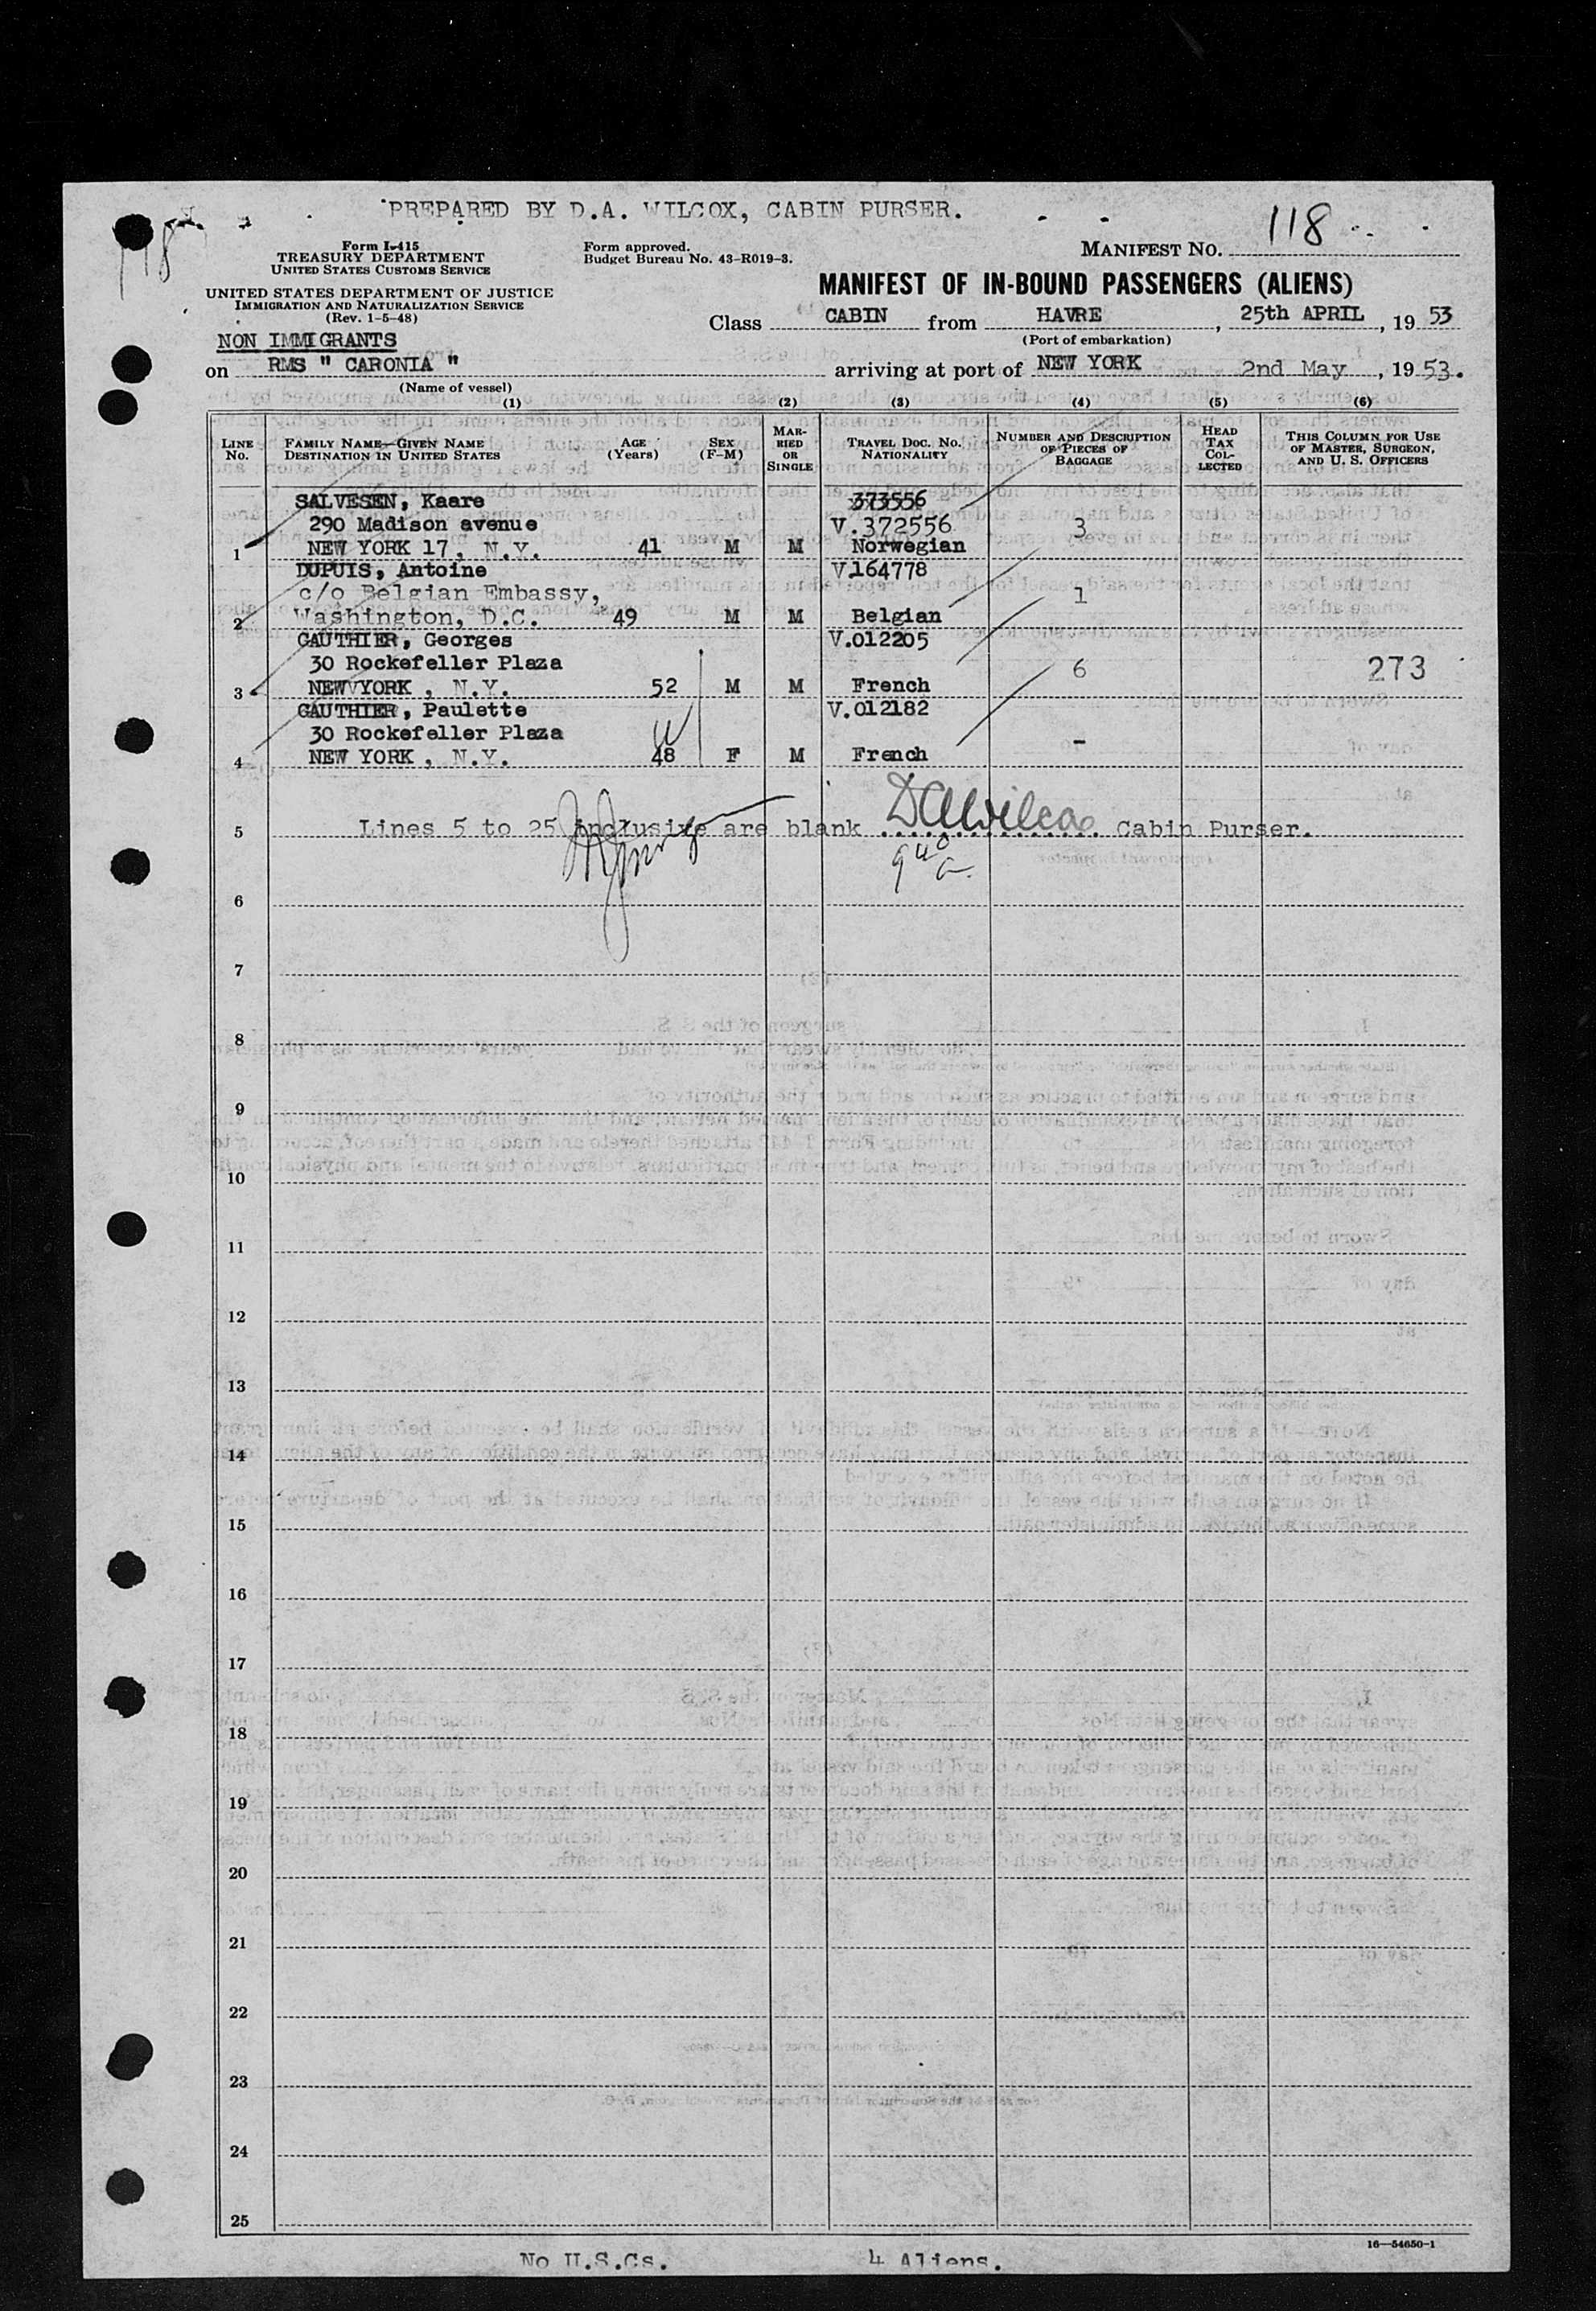 PREPARED BY D.A. WILCOX, CABIN PURSER.
118
Form I-415
TREASURY DEPARTMENT
UNITED STATES CUSTOMS SERVICE
Form approved.
Budget Bureau No. 43-R019-3.
MANIFEST NO. 118
UNITED STATES DEPARTMENT OF JUSTICE
IMMIGRATION AND NATURALIZATION SERVICE
(Rev. 1-5-48)
MANIFEST OF IN-BOUND PASSENGERS (ALIENS)
Class CABIN from HAVRE, 25th APRIL, 19 53
(Port of embarkation)
NON IMMIGRANTS
on RMS " CARONIA " arriving at port of NEW YORK 2nd May, 19 53.
(Name of vessel)
(1) (2) (3) (4) (5) (6)
LINE No. FAMILY NAME—GIVEN NAME DESTINATION IN UNITED STATES AGE (Years) SEX (F-M) MAR-RIED OR SINGLE TRAVEL DOC. NO. NATIONALITY NUMBER AND DESCRIPTION OF PIECES OF BAGGAGE HEAD TAX COL-LECTED THIS COLUMN FOR USE OF MASTER, SURGEON, AND U. S. OFFICERS
SALVESEN, Kaare 373556
290 Madison avenue V.372556 3
1 NEW YORK 17, N.Y. 41 M M Norwegian
DUPUIS, Antoine V.164778
c/o Belgian Embassy, 1
2 Washington, D.C. 49 M M Belgian
GAUTHIER, Georges V.012205
30 Rockefeller Plaza 6 273
3 NEW YORK, N.Y. 52 M M French
GAUTHIER, Paulette V.012182
30 Rockefeller Plaza
4 NEW YORK, N.Y. 48 F M French -
5 Lines 5 to 25 inclusive are blank DAWilcox Cabin Purser.
6
7
8
9
10
11
12
13
14
15
16
17
18
19
20
21
22
23
24
25
16—54650-1
No U.S.Cs. 4 Aliens.